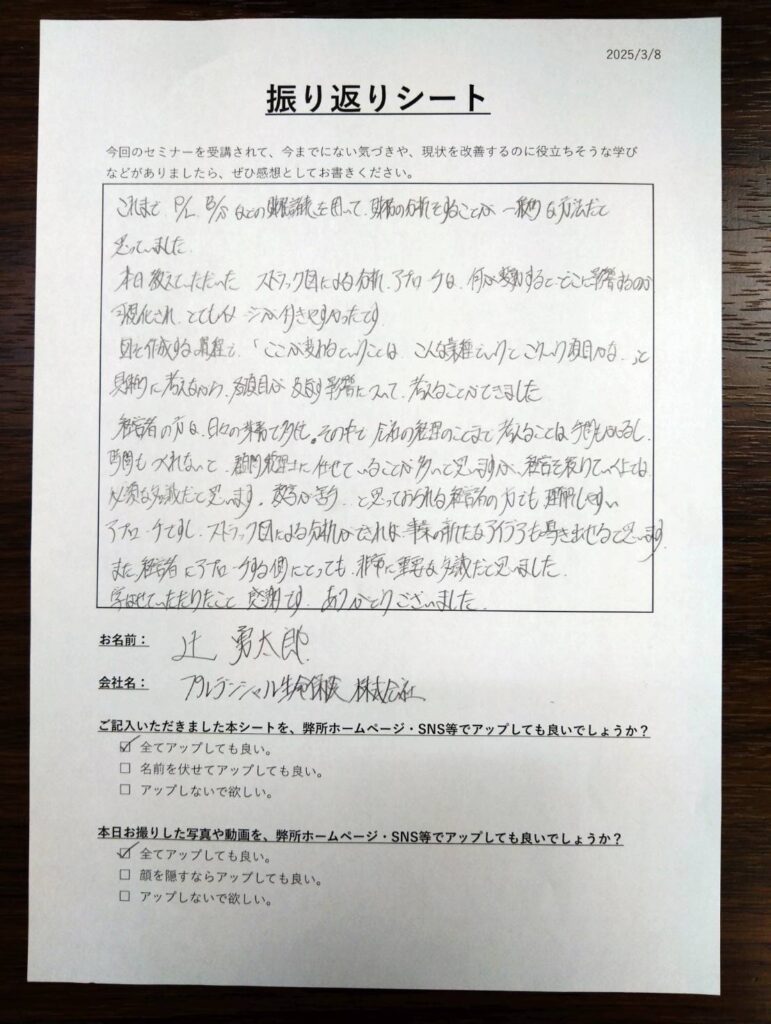 2025/3/8
振り返りシート
今回のセミナーを受講されて、今までにない気づきや、現状を改善するのに役立ちそうな学び
などがありましたら、ぜひ感想としてお書きください。
これまで P/L B/S などの財務諸表を用いて、財務の分析をすることが 一般的な方法だと
思っていました。
本日教えていただいた ストラック図による分析、アプローチは、何が変動すると、どこに影響するのか
可視化され、とてもイメージが付きやすかったです
図を作成する過程で、「ここが変わるということは、こんな業種でいうとこういう項目かな…」と
具体的に考えながら、各項目が及ぼす影響について、考えることができました
経営者の方は、日々の業務で多忙。その中で 会社の経理のことまで考えることは手間もかかるし、
時間もつくれないと、顧問税理士に任せていることが多いと思いますが、経営を採りていく上では
必須な知識だと思います。数字が苦手…と思っておられる経営者の方でも理解しやすい
アプローチですし、ストラック図による分析ができれば、事業の新たなアイデアも導き出せると思います。
また、経営者にアプローチする側にとっても、非常に重要な知識だと思いました。
学ばせていただけたこと 感謝です。ありがとうございました。
お名前： 辻 勇太郎
会社名： プルデンシャル生命保険 株式会社
ご記入いただきました本シートを、弊所ホームページ・SNS等でアップしても良いでしょうか？
☑ 全てアップしても良い。
☐ 名前を伏せてアップしても良い。
☐ アップしないで欲しい。
本日お撮りした写真や動画を、弊所ホームページ・SNS等でアップしても良いでしょうか？
☑ 全てアップしても良い。
☐ 顔を隠すならアップしても良い。
☐ アップしないで欲しい。